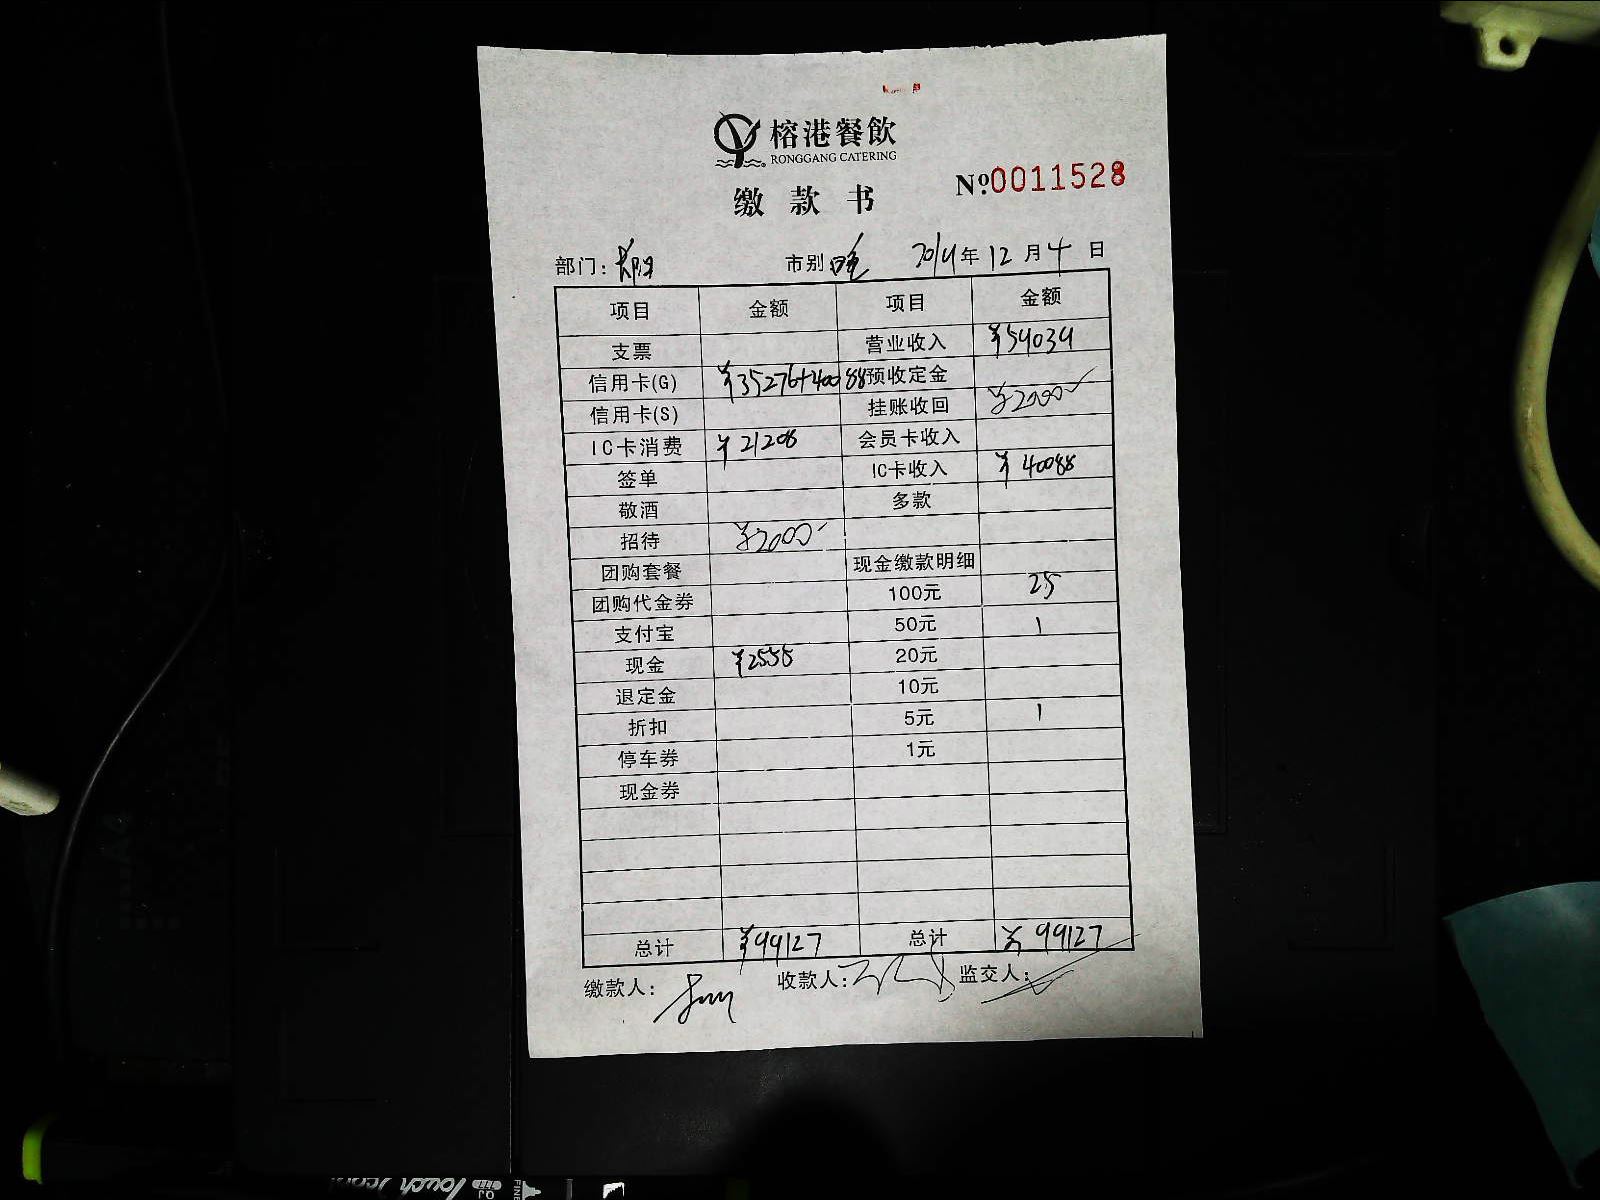 榕港餐飲
RONGGANG CATERING
缴款书
№0011528
部门：
市别 晚 2014年12月4日
项目 金额 项目 金额
支票 营业收入 ¥54039
信用卡(G) ¥35276+40088 预收定金
信用卡(S) 挂账收回 ¥2000
IC卡消费 ¥21208 会员卡收入
签单 IC卡收入 ¥40088
敬酒 多款
招待 ¥2000
团购套餐 现金缴款明细
团购代金券 100元 25
支付宝 50元 1
现金 ¥2555 20元
退定金 10元
折扣 5元 1
停车券 1元
现金券
总计 ¥99127 总计 ¥99127
缴款人： 收款人： 监交人：
Touch
FINE